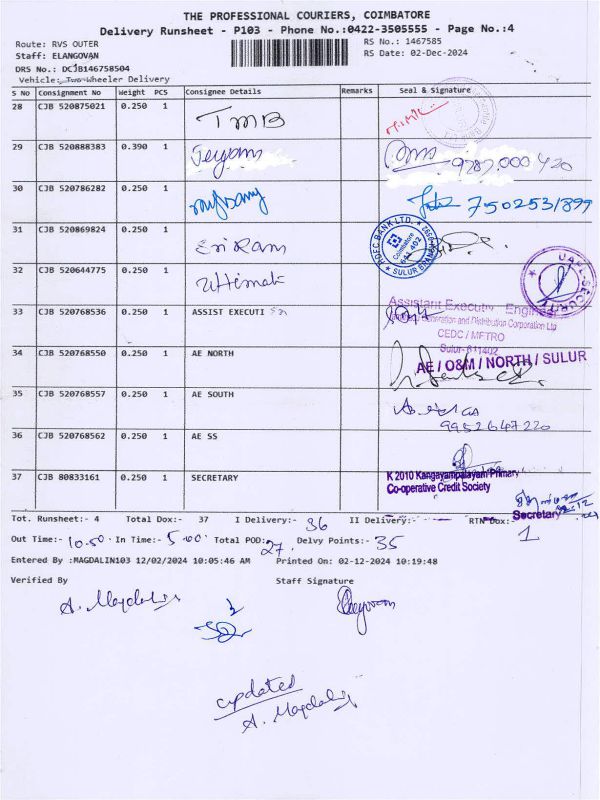 THE PROFESSIONAL COURIERS, COIMBATORE
Delivery Runsheet - P103 - Phone No.:0422-3505555 - Page No.:4
Route: RVS OUTER RS No.: 1467585
Staff: ELANGOVAN RS Date: 02-Dec-2024
DRS No.: DCJB146758504
Vehicle: Two Wheeler Delivery
S No Consignment No Weight PCS Consignee Details Remarks Seal & Signature
28 CJB 520875021 0.250 1 TMB
29 CJB 520888383 0.390 1 9787000420
30 CJB 520786282 0.250 1 7502531899
31 CJB 520869824 0.250 1 Sriram
HDFC BANK LTD.
Coimbatore
641 402
SULUR BRANCH
32 CJB 520644775 0.250 1
33 CJB 520768536 0.250 1 ASSIST EXECUTI
Assistant Executive Engineer
Generation and Distribution Corporation Ltd
CEDC / METRO
Sulur- 641402
34 CJB 520768550 0.250 1 AE NORTH
AE / O&M / NORTH / SULUR
35 CJB 520768557 0.250 1 AE SOUTH
9952647220
36 CJB 520768562 0.250 1 AE SS
37 CJB 80833161 0.250 1 SECRETARY
K 2010 Kangayampalayam Primary
Co-operative Credit Society
Secretary
Tot. Runsheet:- 4 Total Dox:- 37 I Delivery:- 36 II Delivery:- RTN Dox:- 1
Out Time:- 10.50 In Time:- 5.00 Total POD:- 27 Delvy Points:- 35
Entered By :MAGDALIN103 12/02/2024 10:05:46 AM Printed On: 02-12-2024 10:19:48
Verified By Staff Signature
A. Magdalin
updated
A. Magdalin